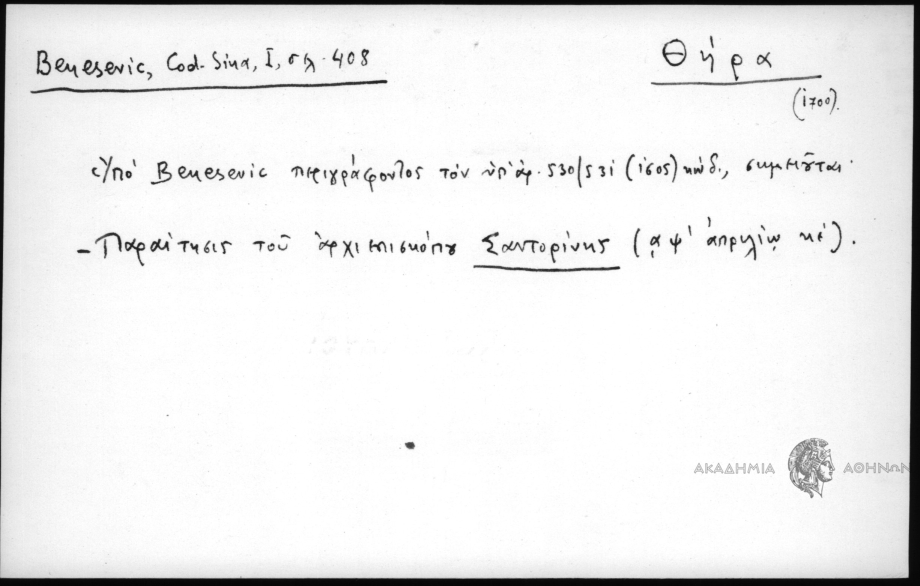 Benesevic, Cod. Sina, I, σλ. 408
Θήρα
(1700).
Ὑπό Benesevic περιγράφοντος τόν ὑπ' ἀρ. 530/531 (ἱσος) κώδ., σημειοῦται·
- Παραίτησις τοῦ ἀρχιεπισκόπου Σαντορίνης (͵αψ' ἀπριλίῳ κε').
ΑΚΑΔΗΜΙΑ ΑΘΗΝΩΝ